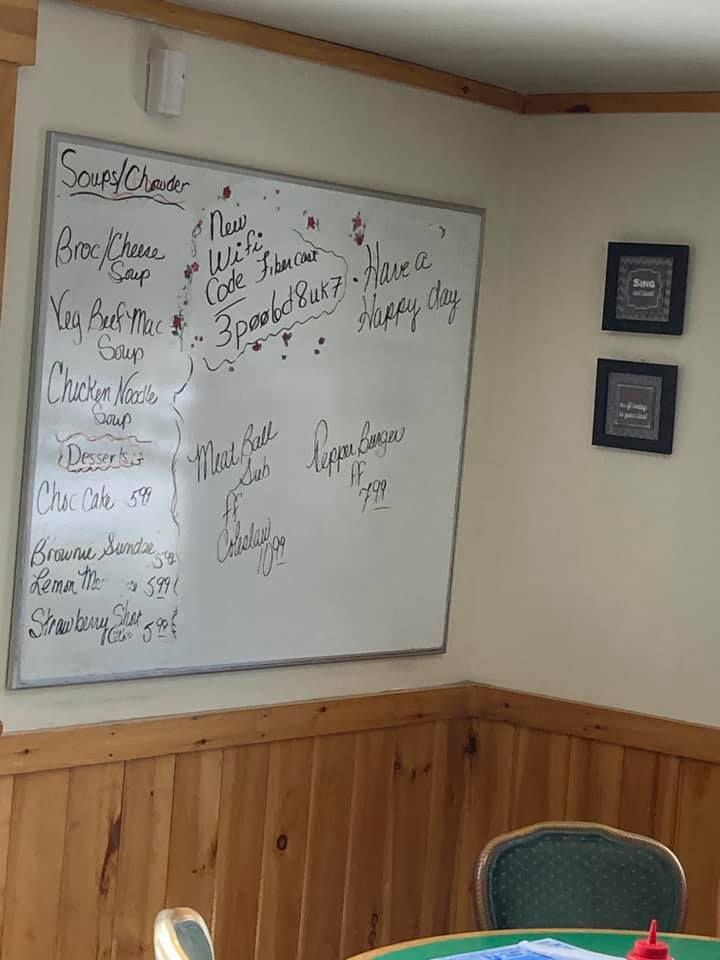 Soups/Chowder
Broc/Cheese
Soup
Veg Beef Mac
Soup
Chicken Noodle
Soup
Desserts
Choc Cake 5.99
Brownie Sundae
5.99
Lemon 5.99
Strawberry Short
Cake 5.99
New
Wifi
Code Fibercast
Have a
Happy day
Meat Ball
Sub
FF
Coleslaw
10.99
Pepper Burger
FF
7.99
SING